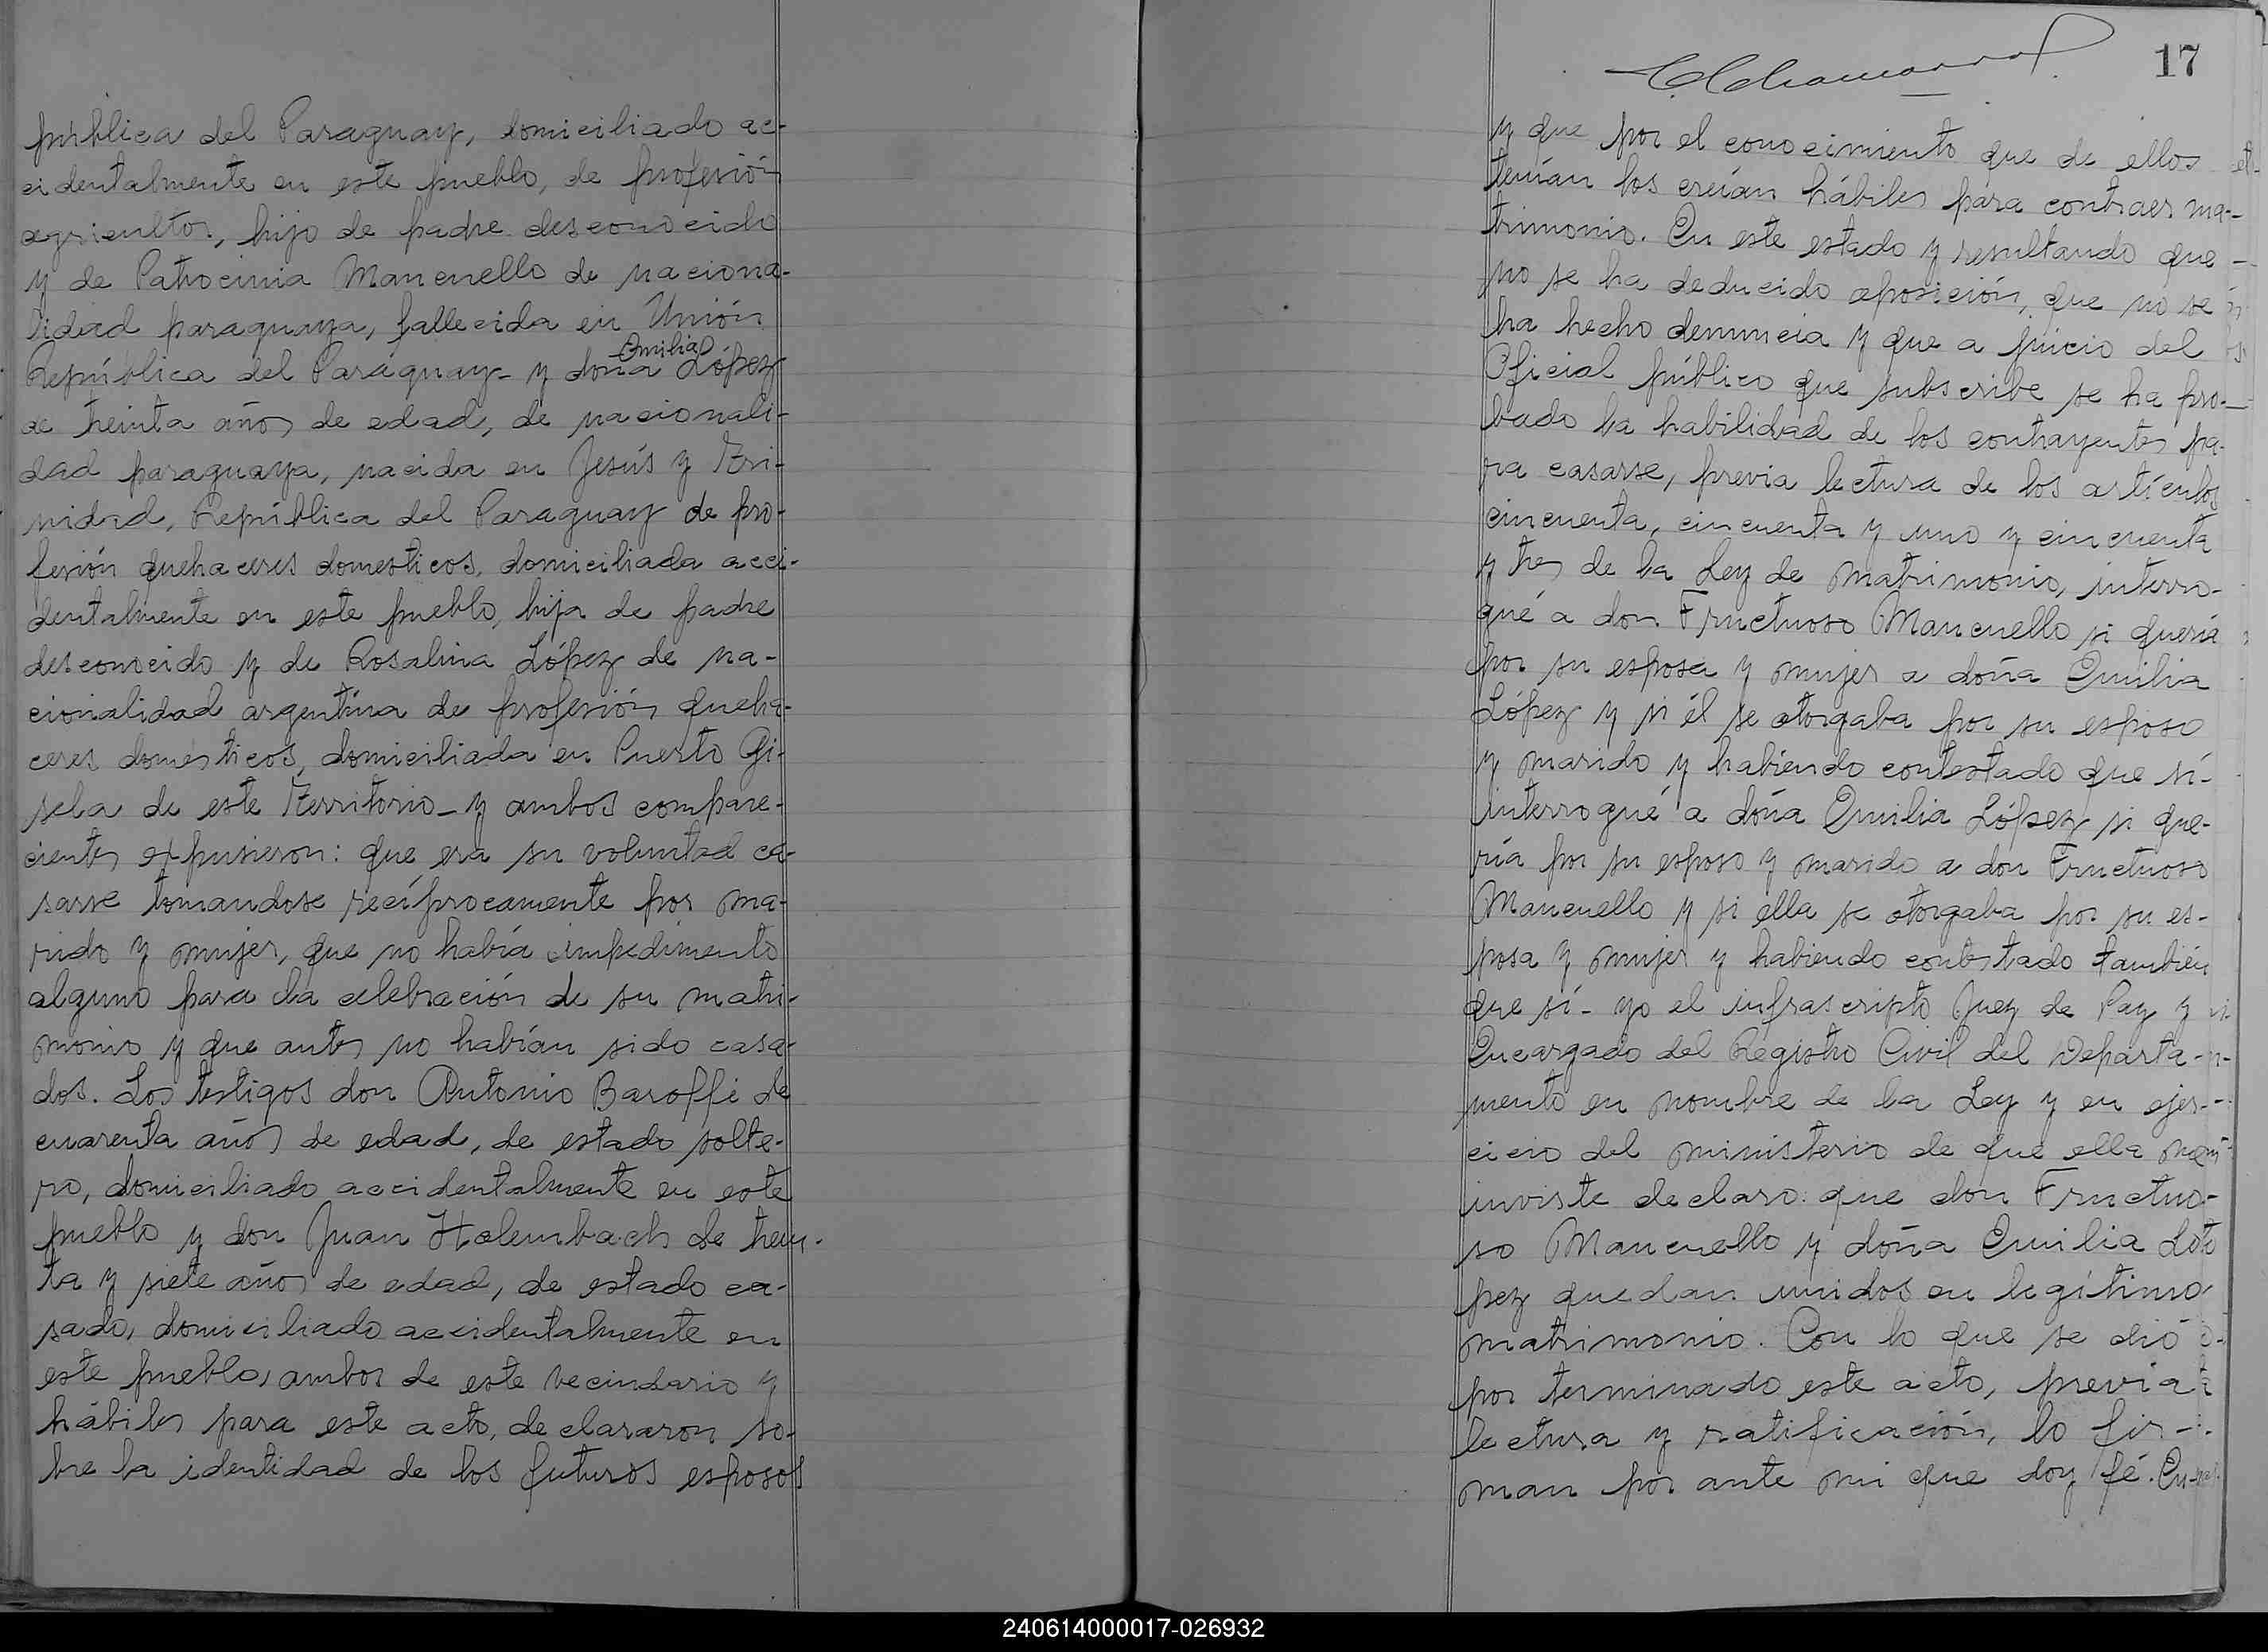 pública del Paraguay, domiciliado ac-
cidentalmente en este pueblo, de profesión
agricultor, hijo de padre desconocido
y de Patrocinia Mancuello de naciona-
lidad paraguaya, fallecida en Unión
Emilia
República del Paraguay - y doña López
de treinta años de edad, de nacionali-
dad paraguaya, nacida en Jesús y Tri-
nidad, República del Paraguay de pro-
fesión quehaceres domesticos, domiciliada acci-
dentalmente en este pueblo, hija de padre
desconocido y de Rosalina López de na-
cionalidad argentina de profesión queha-
ceres domésticos, domiciliada en Puerto Gi-
sela de este Territorio - y ambos compare-
cientes expusieron: que era su voluntad ca-
sarse tomandose recíprocamente por ma-
rido y mujer, que no había impedimento
alguno para la celebración de su matri-
monio y que antes no habían sido casa-
dos. Los testigos don Antonio Baroffi de
cuarenta años de edad, de estado solte-
ro, domiciliado accidentalmente en este
pueblo y don Juan Halembach de trein-
ta y siete años de edad, de estado ca-
sado, domiciliado accidentalmente en
este pueblo, ambos de este vecindario y
hábiles para este acto, declararon so-
bre la identidad de los futuros esposos
17
y que por el conocimiento que de ellos
tenían los creían hábiles para contraer ma-
trimonio. En este estado y resultando que
no se ha deducido oposición, que no se
ha hecho denuncia y que a juicio del
Oficial público que subscribe se ha pro-
bado la habilidad de los contrayentes pa-
ra casarse, previa lectura de los artículos
cincuenta, cincuenta y uno y cincuenta
y tres de la Ley de Matrimonio, interro-
gué a don Fructuoso Mancuello si quería
por su esposa y mujer a doña Emilia
López y si él se otorgaba por su esposo
y marido y habiendo contestado que sí -
interrogué a doña Emilia López si que-
ría por su esposo y marido a don Fructuoso
Mancuello y si ella se otorgaba por su es-
posa y mujer y habiendo contestado también
que sí - yo el infrascripto Juez de Paz y
Encargado del Registro Civil del Departa-
mento en nombre de la Ley y en ejer-
cicio del ministerio de que ella me
inviste declaro: que don Fructuo-
so Mancuello y doña Emilia Ló
pez quedan unidos en legítimo
matrimonio. Con lo que se dió
por terminado este acto, previa
lectura y ratificación, lo fir-
man por ante mi que doy fé. En-
240614000017-026932